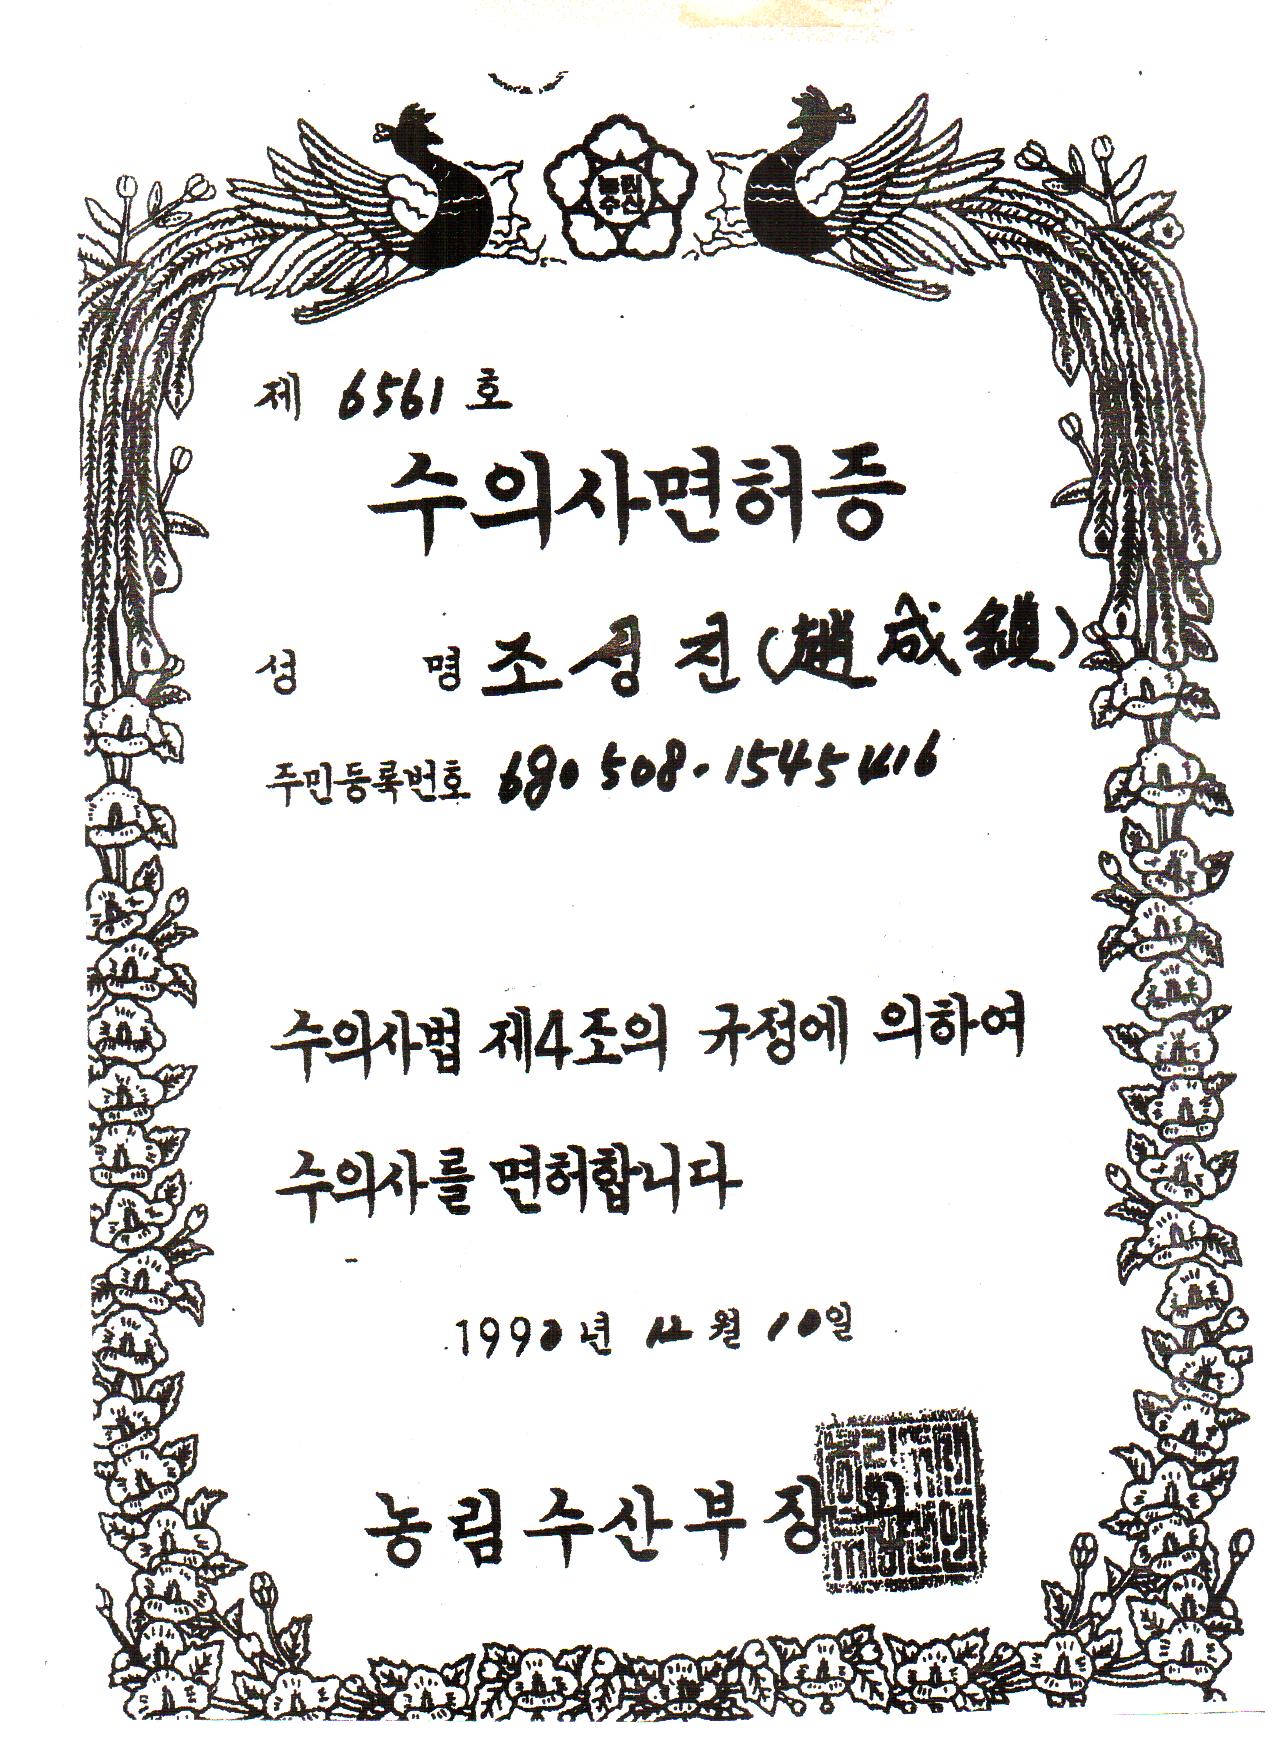 농림
수산
제 6561 호
수의사면허증
성 명 조성진(趙成鎭)
주민등록번호 680508-1545416
수의사법 제4조의 규정에 의하여
수의사를 면허합니다
1990년 12월 10일
농림수산부장관